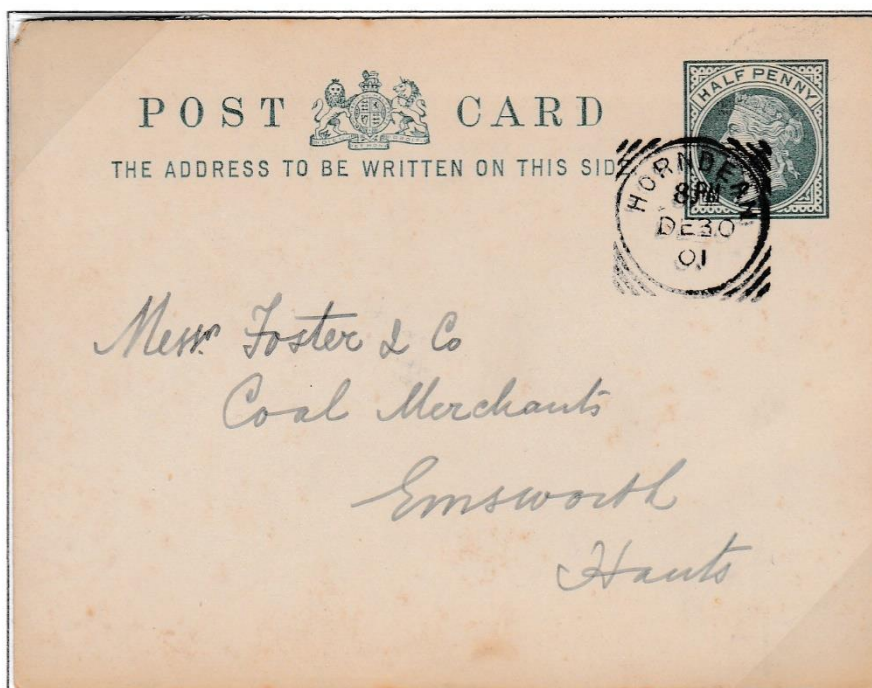 POST CARD
HALF PENNY
THE ADDRESS TO BE WRITTEN ON THIS SIDE
HORNDEAN
8 PM
DE 30
01
Messrs. Foster & Co
Coal Merchants
Emsworth
Hants